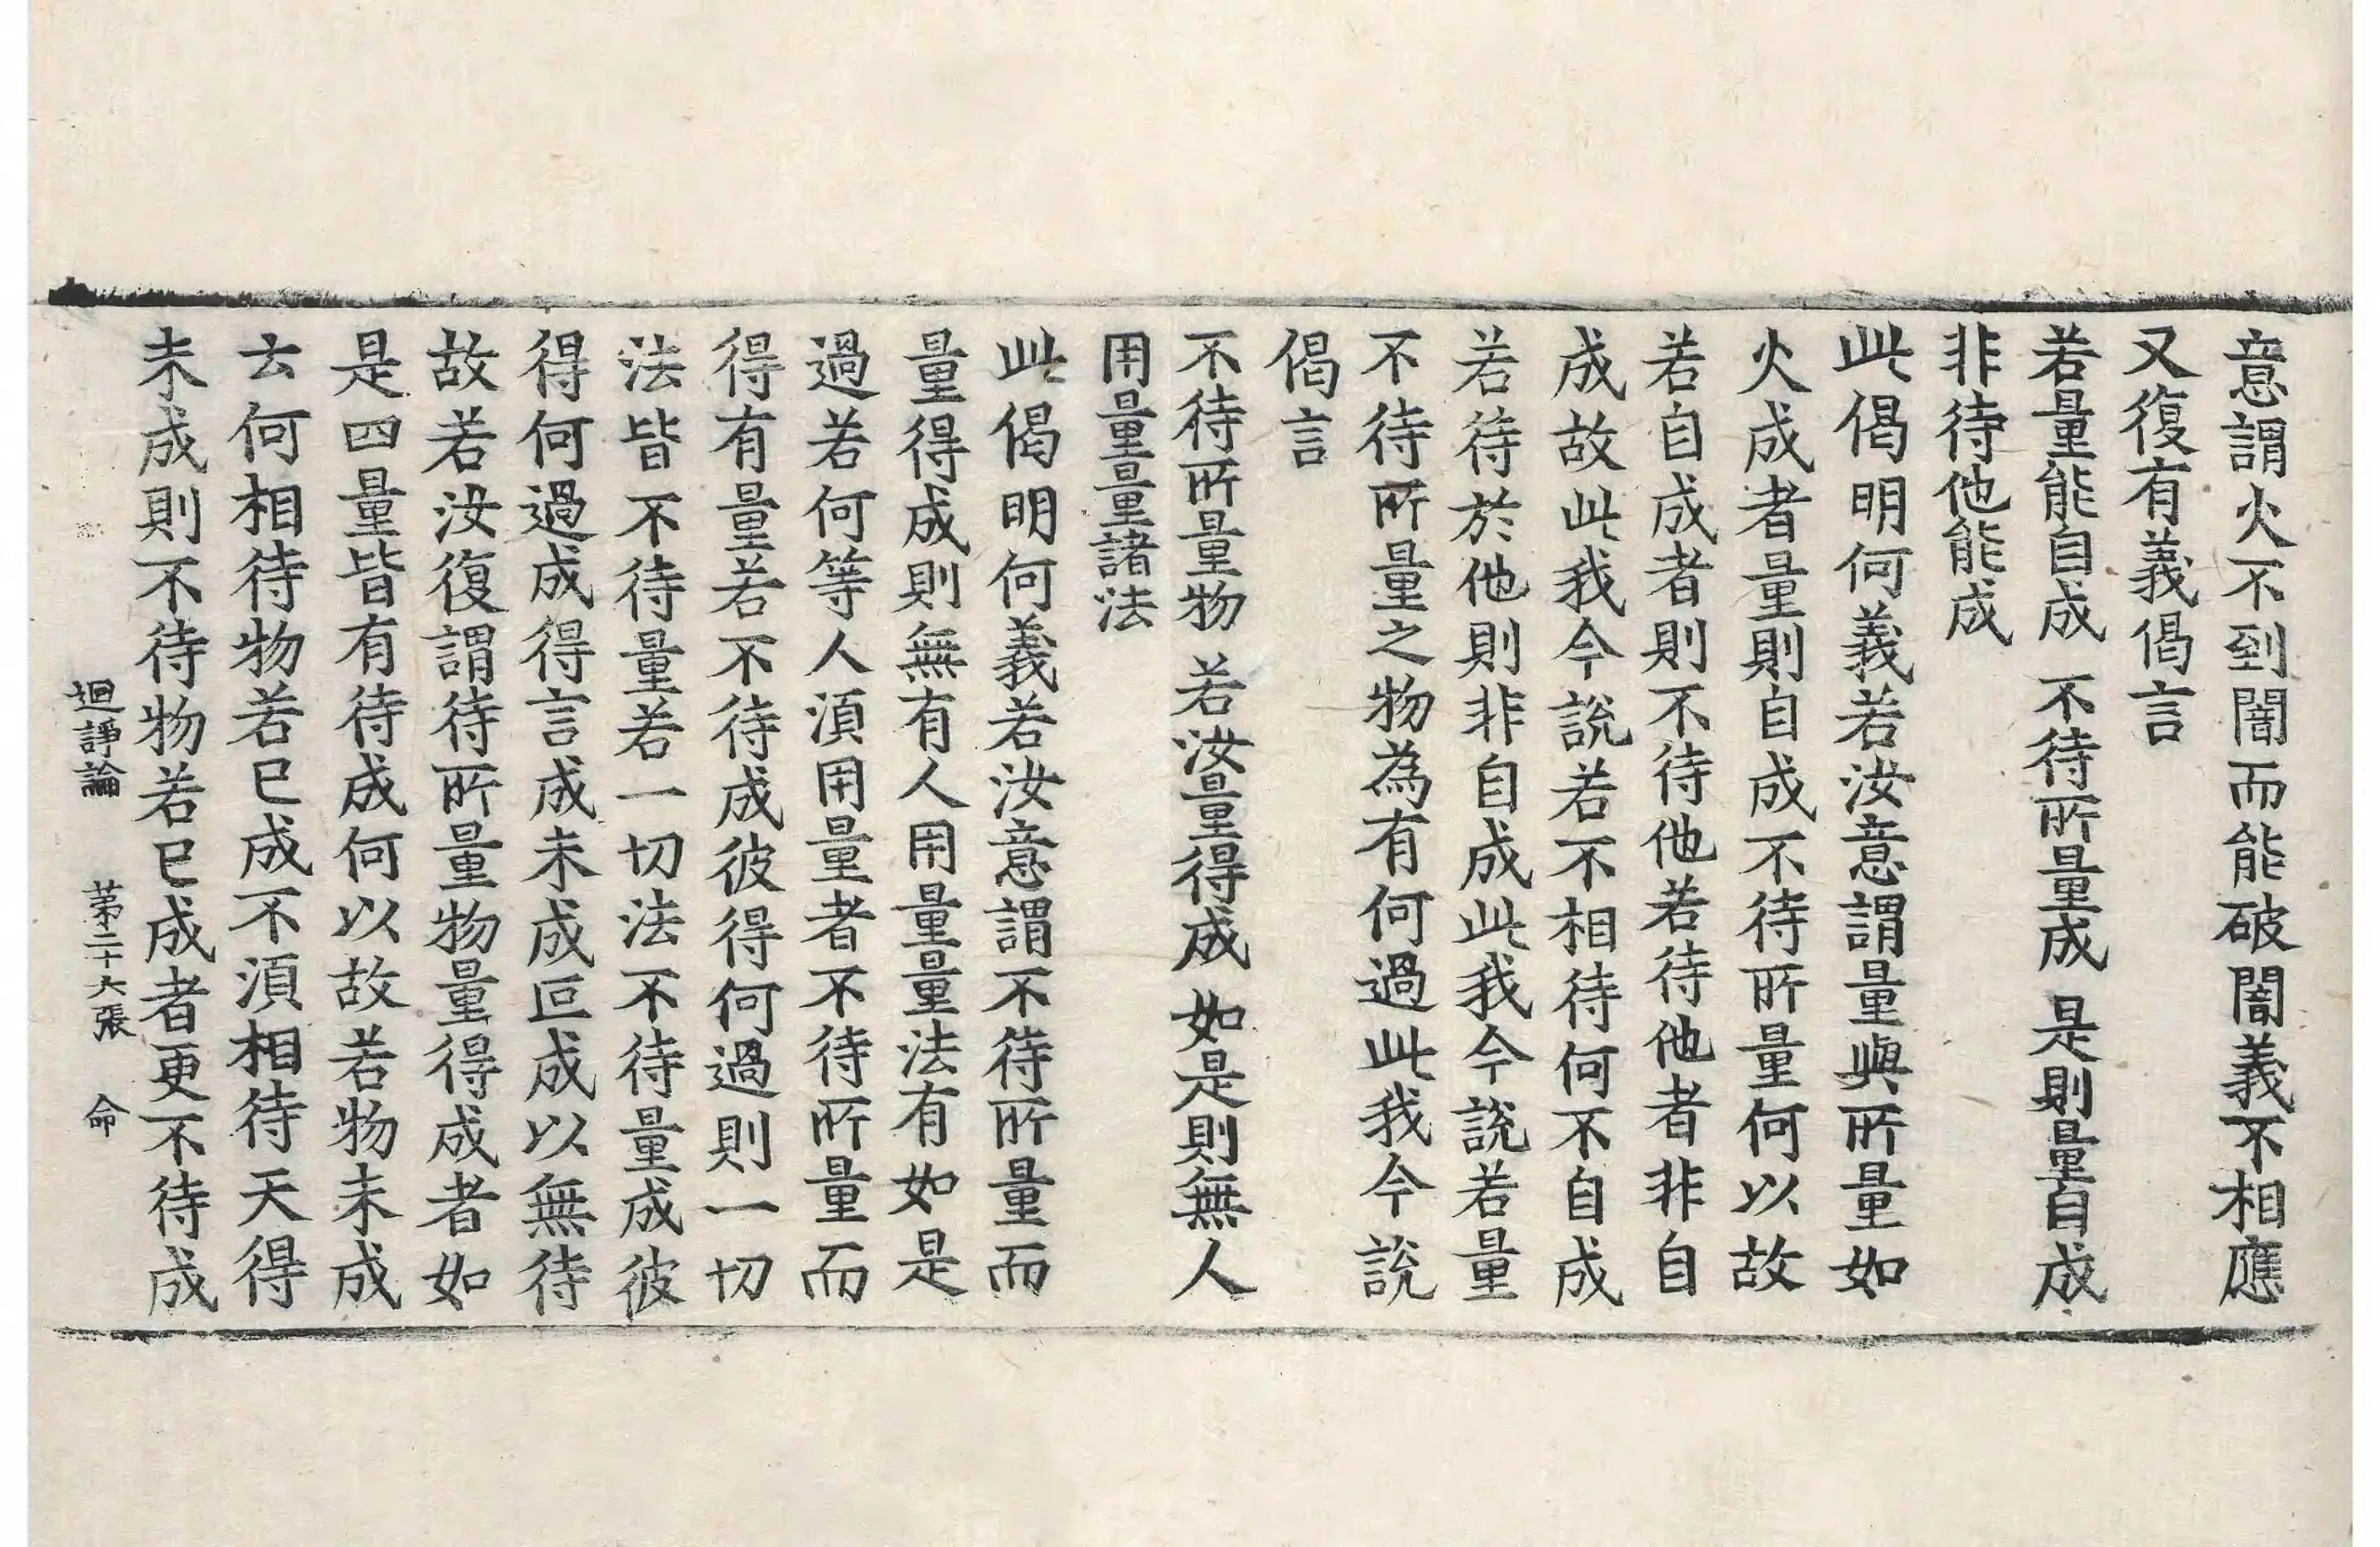 意謂火不到闇而能破闇義不相應
又復有義偈言
若量能自成 不待所量成 是則量自成
非待他能成
此偈明何義若汝意謂量與所量如
火成者量則自成不待所量何以故
若自成者則不待他若待他者非自
成故此我今説若不相待何不自成
若待於他則非自成此我今説若量
不待所量之物為有何過此我今説
偈言
不待所量物 若汝量得成 如是則無人
用量量諸法
此偈明何義若汝意謂不待所量而
量得成則無有人用量量法有如是
過若何等人湏用量者不待所量而
得有量若不待成彼得何過則一切
法皆不待量若一切法不待量成彼
得何過成得言成未成叵成以無待
故若汝復謂待所量物量得成者如
是四量皆有待成何以故若物未成
云何相待物若已成不湏相待天得
未成則不待物若已成者更不待成
迴諍論 苐二十六張 命